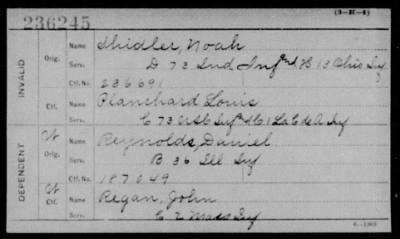 (3-H-4)
236245
INVALID
Orig.
Name Shidler, Noah
Serv. D 72 Ind Inf & H 13 Ohio Inf
Ctf. No. 236691
Ctf.
Name Planchard Louis
Serv. C 73 USC Inf & C 1 La C de A Inf
DEPENDENT
W
Orig.
Name Reynolds, Daniel
Serv. B 36 Ill Inf
Ctf. No. 187049
W
Ctf.
Name Regan, John
Serv. C 2 Mass Inf